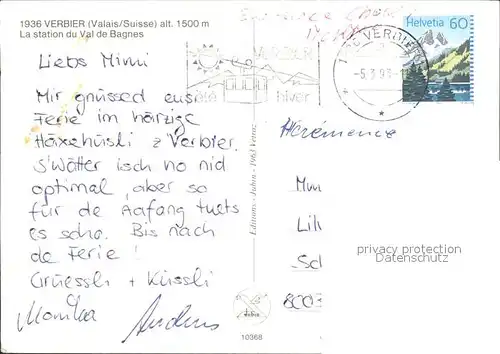 1936 VERBIER (Valais/Suisse) alt. 1500 m
La station du Val de Bagnes
Liebs Mimi
Mir gnüssed eusi
Ferie im härzige
Häxehüsli z Verbier.
S'Wätter isch no nid
optimal, aber so
für de Aafang tuets
es scho. Bis nach
de Ferie!
Grüessli + Küssli
Monika Andreas
VERBIER
été hiver
VERBIER
-5.3.93-
Helvetia 60
Hérémence
Mm
Lil
Sc
8003
privacy protection
Datenschutz
10368